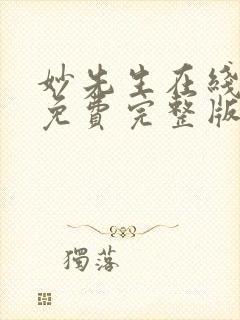 妙先生在綫
免費完整版
獨落